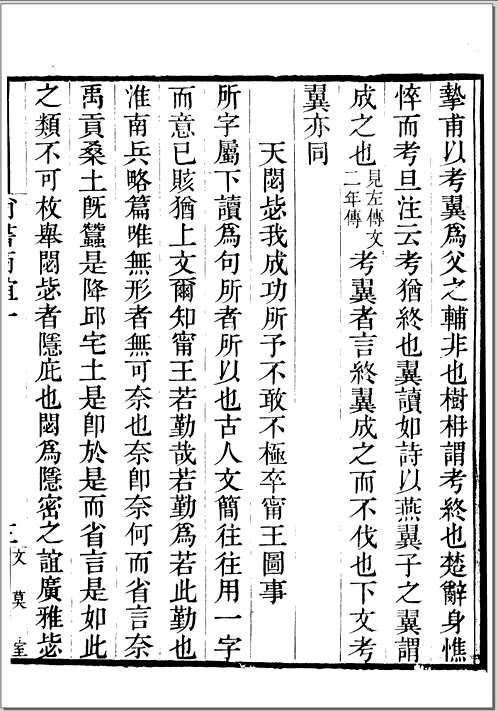 摯甫以考翼爲父之輔非也樹枏謂考終也楚辭身憔
悴而考旦注云考猶終也翼讀如詩以燕翼子之翼謂
成之也見左傳文二年傳考翼者言終翼成之而不伐也下文考
翼亦同
天閟毖我成功所予不敢不極卒甯王圖事
所字屬下讀爲句所者所以也古人文簡往往用一字
而意已賅猶上文爾知甯王若勤哉若勤爲若此勤也
淮南兵略篇唯無形者無可奈也奈卽奈何而省言奈
禹貢桑土旣蠶是降邱宅土是卽於是而省言是如此
之類不可枚舉閟毖者隱庇也閟爲隱密之誼廣雅毖
文莫室